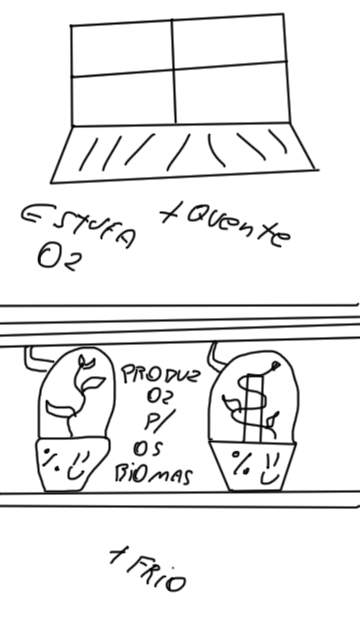 ESTUFA + QUENTE
O2
PRODUZ
O2
P/
OS
BIOMAS
%
%
+ FRIO